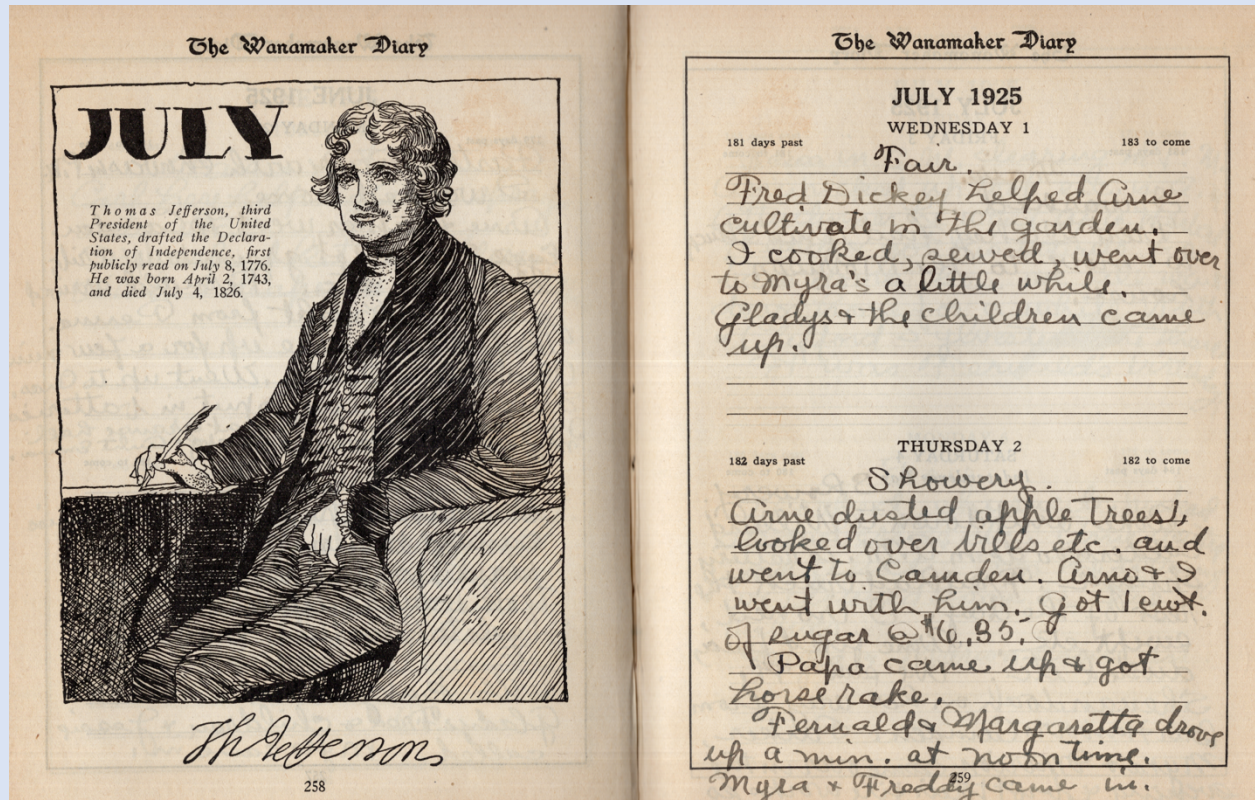 The Wanamaker Diary
JULY
Thomas Jefferson, third
President of the United
States, drafted the Declara-
tion of Independence, first
publicly read on July 8, 1776.
He was born April 2, 1743,
and died July 4, 1826.
Th Jefferson
258
The Wanamaker Diary
JULY 1925
WEDNESDAY 1
181 days past
183 to come
Fair.
Fred Dickey helped Arne
cultivate in the garden.
I cooked, sewed, went over
to Myra's a little while.
Gladys & the children came
up.
THURSDAY 2
182 days past
182 to come
Showery.
Arne dusted apple trees,
looked over bills etc. and
went to Camden. Arno & I
went with him. Got 1 cwt.
of sugar @ $6.35.
Papa came up & got
horse rake.
Fernald & Margaretta drove
up a min. at noon time.
Myra & Freddy came in.
259